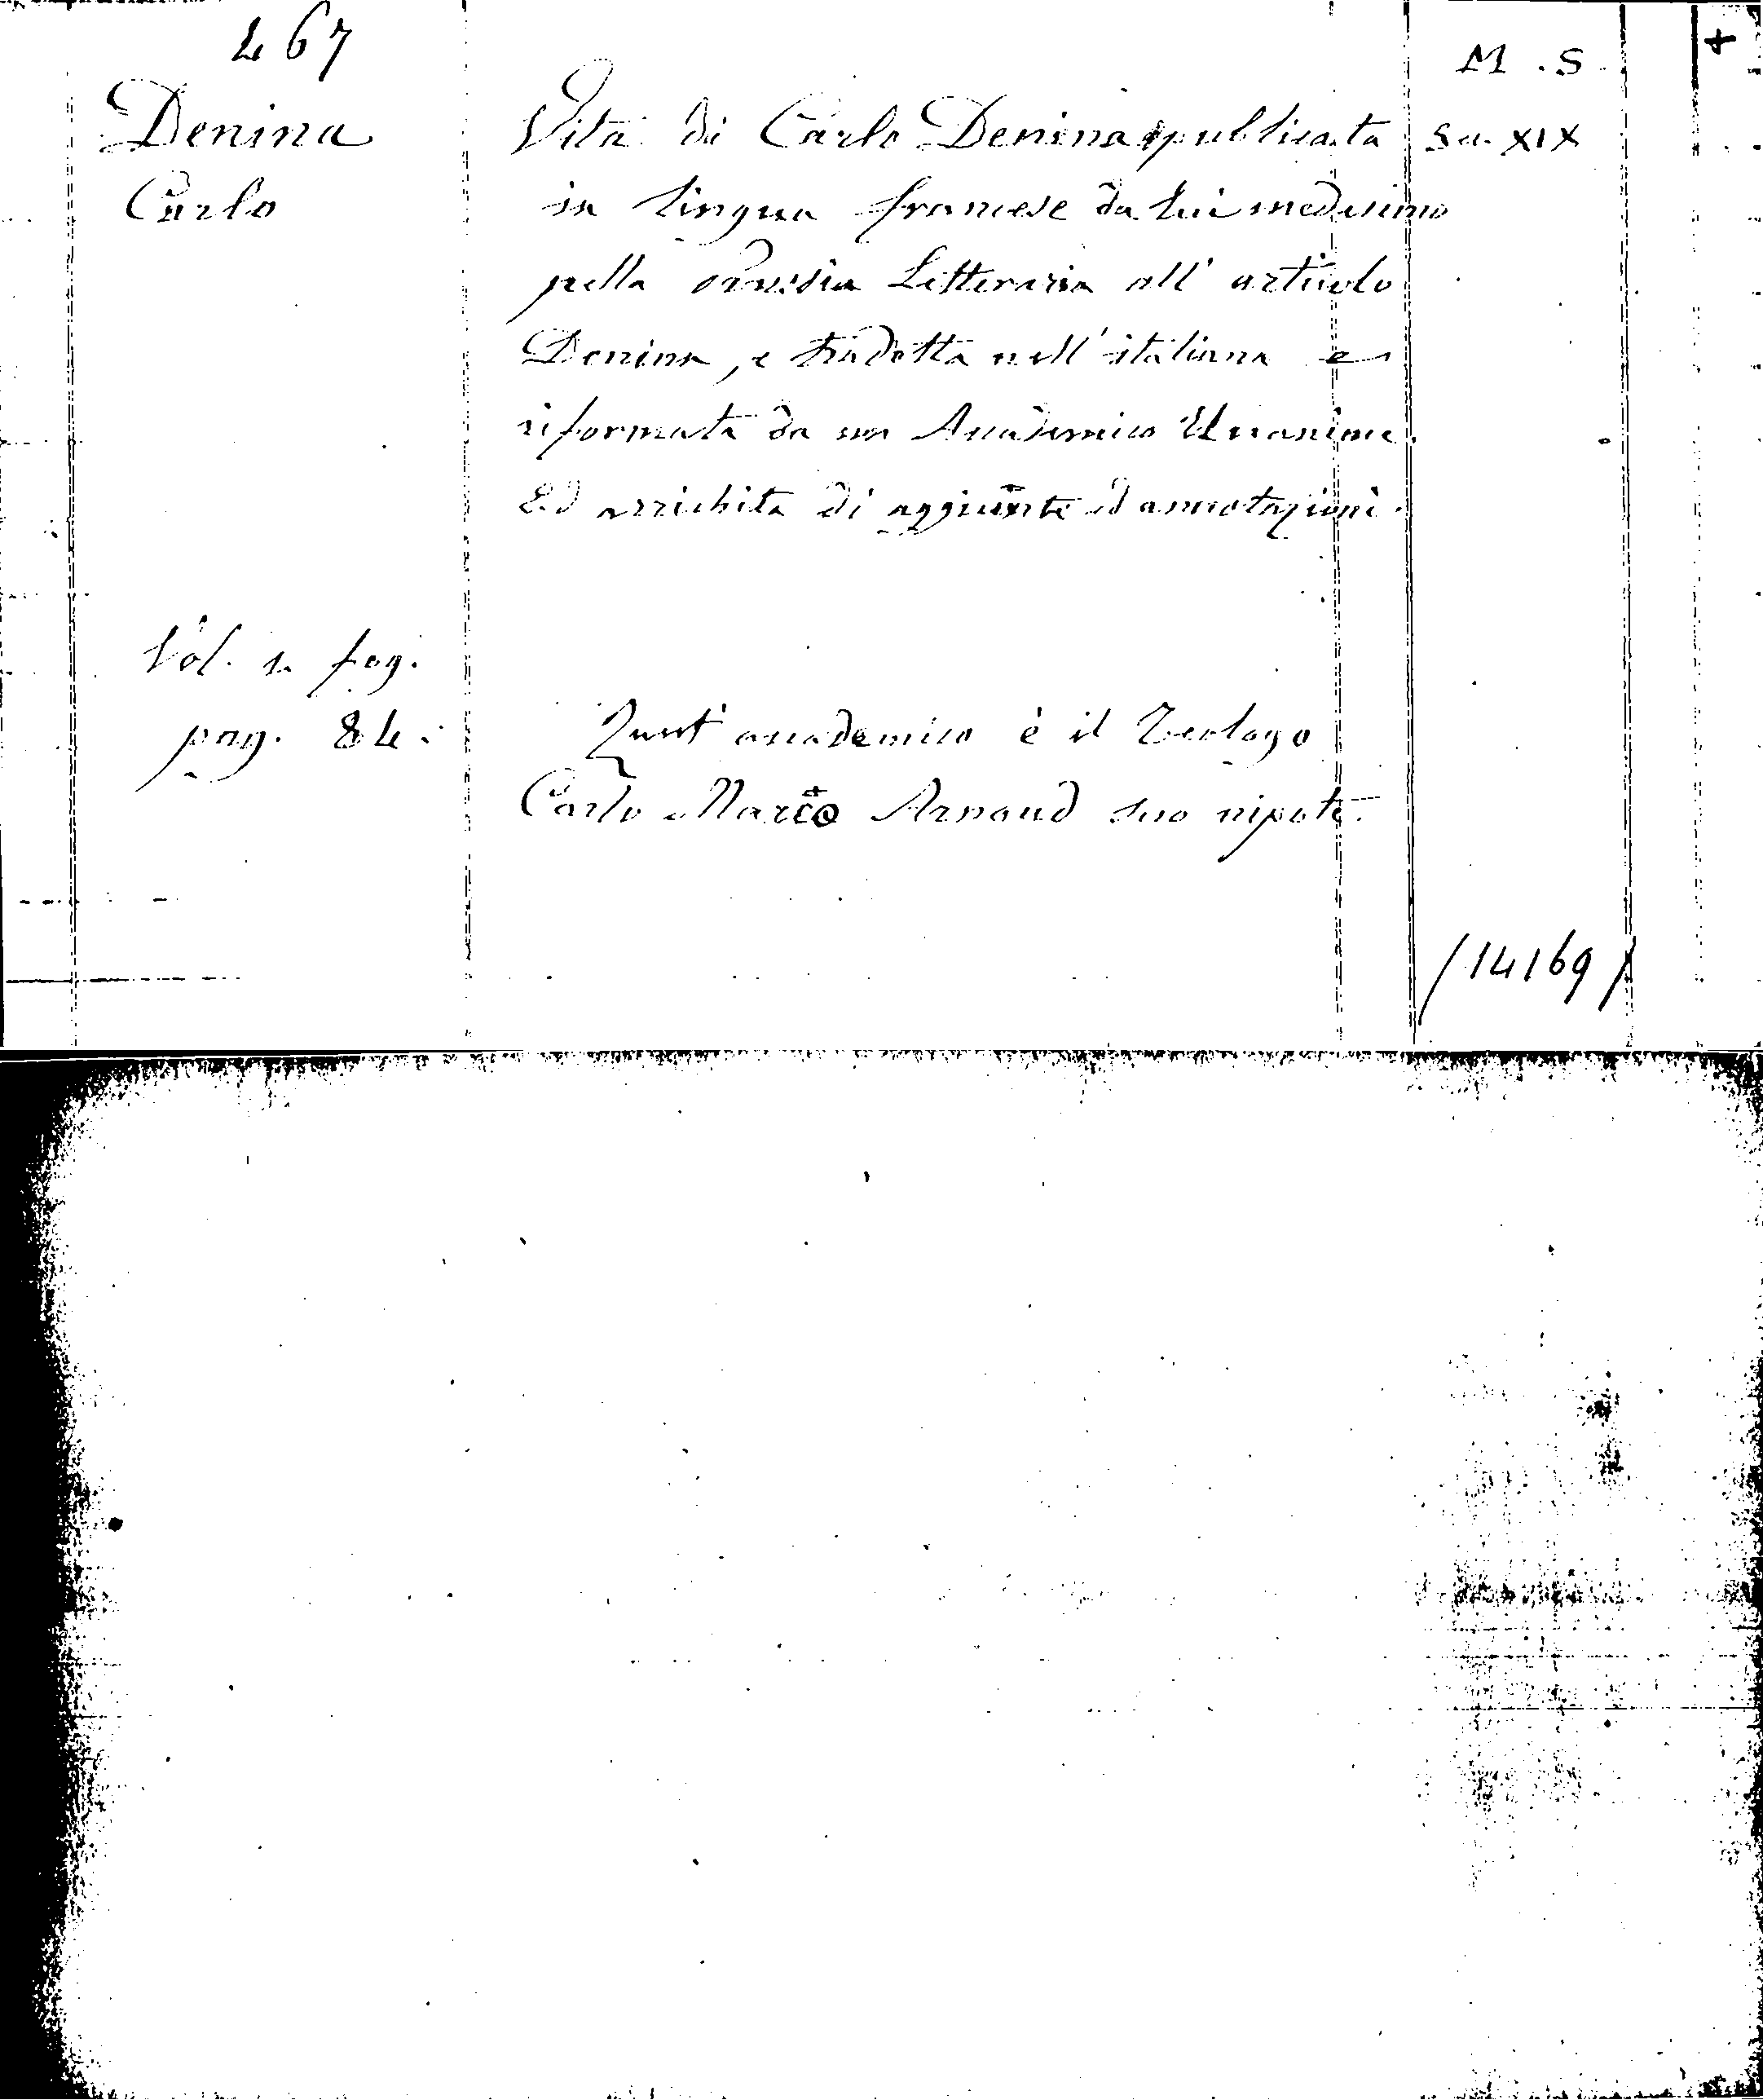 467
M.S.
+
Denina
Carlo
Vita di Carlo Denina publicata
in lingua francese da lui medesimo
nella Prussia Letteraria all' articolo
Denina, e tradotta nell' italiana e
riformata da un Accademico Unanime.
Ed arrichita di aggiunte ed annotazioni.
Sec. XIX
Vol. 1. fog.
pag. 84.
Quest' accademico è il Teologo
Carlo Marco Arnaud suo nipote.
/14169/